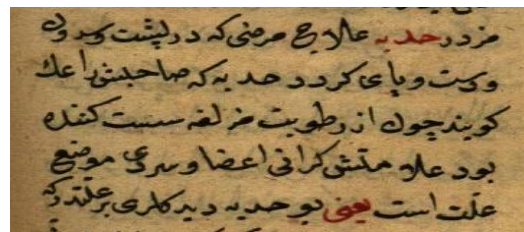 مرد در حدبه علاج مرضی که در پشت و سرون
و دست و پای کردد حدبه که صاحبش را عك
کویند چون از رطوبت مزلقه سست کننده
بود علامتش کرانی اعضا و سردی موضع
علت است یعنی بو حدبه دیدکلری بر علتدر که